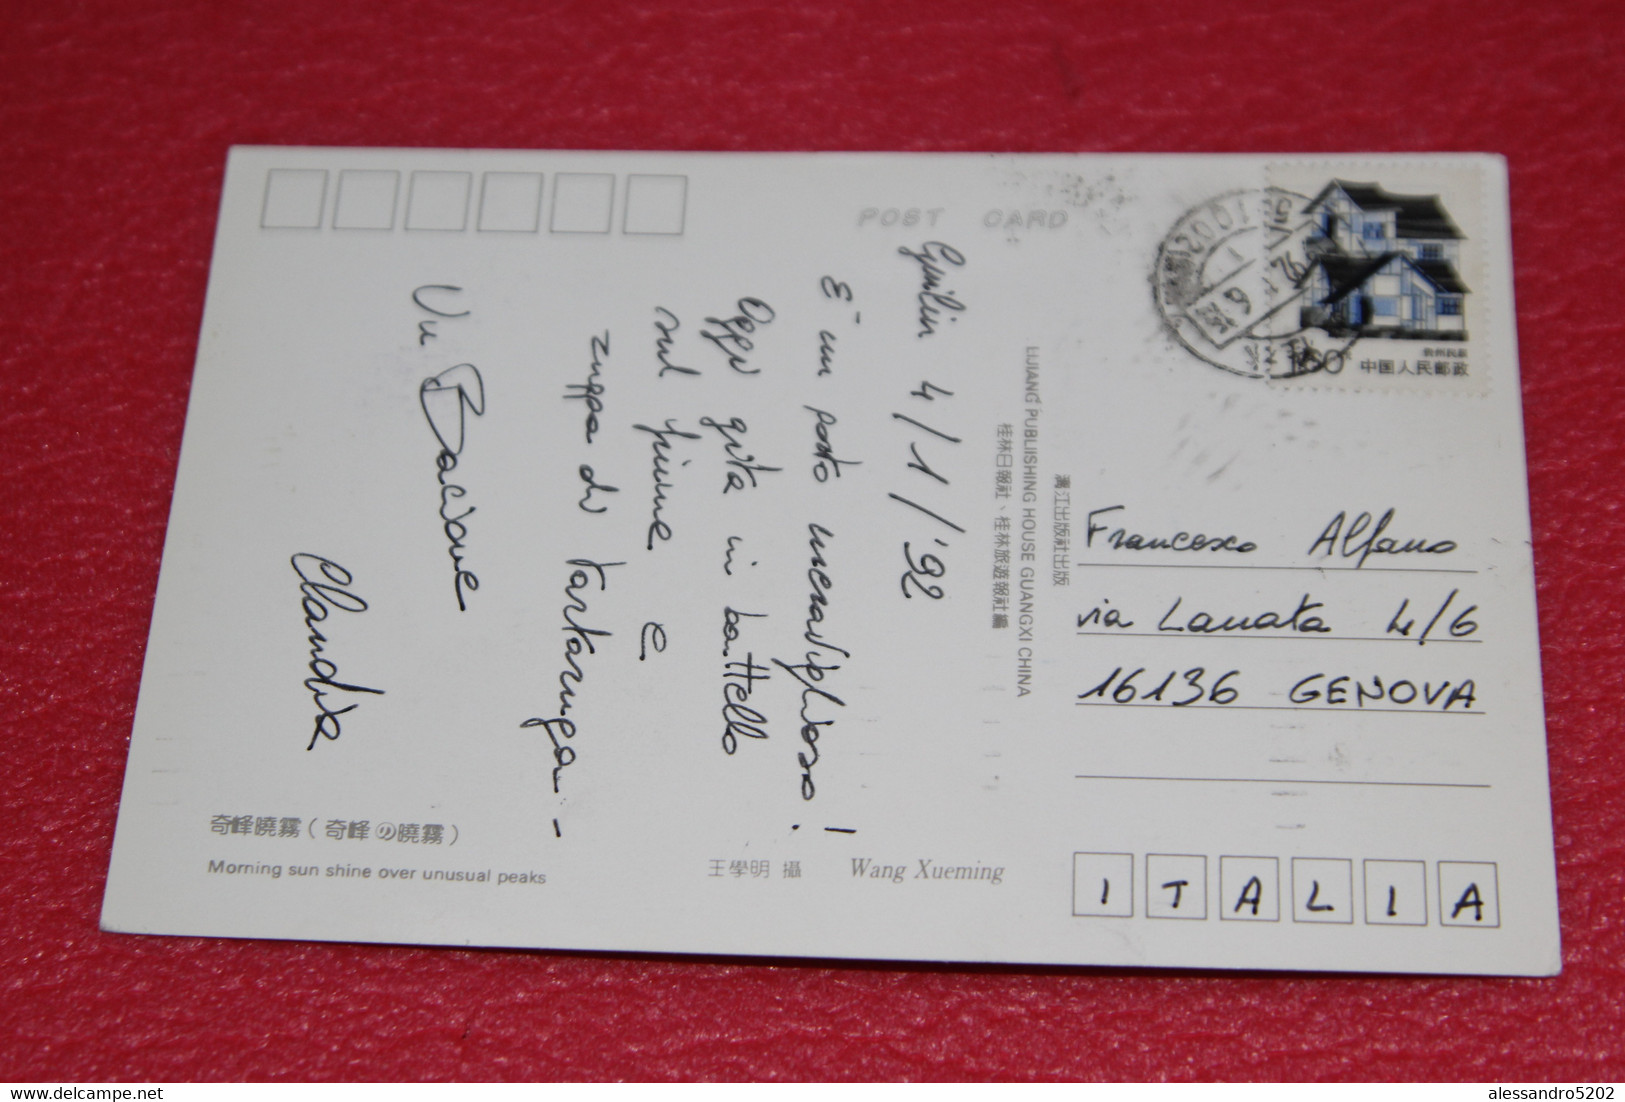 POST CARD
Guilin 4/1/'92
È un posto meraviglioso!
Oggi gita in battello
sul fiume e
zuppa di tartaruga-
Un Bacione
Claudia
奇峰曉霧（奇峰の曉霧）
Morning sun shine over unusual peaks
王學明 攝 Wang Xueming
桂林日報社、桂林旅遊報社編
LIJIANG PUBLIISHING HOUSE GUANGXI CHINA
漓江出版社出版
中国人民邮政
Francesco Alfano
via Lanata 4/6
16136 GENOVA
ITALIA
alessandro5202